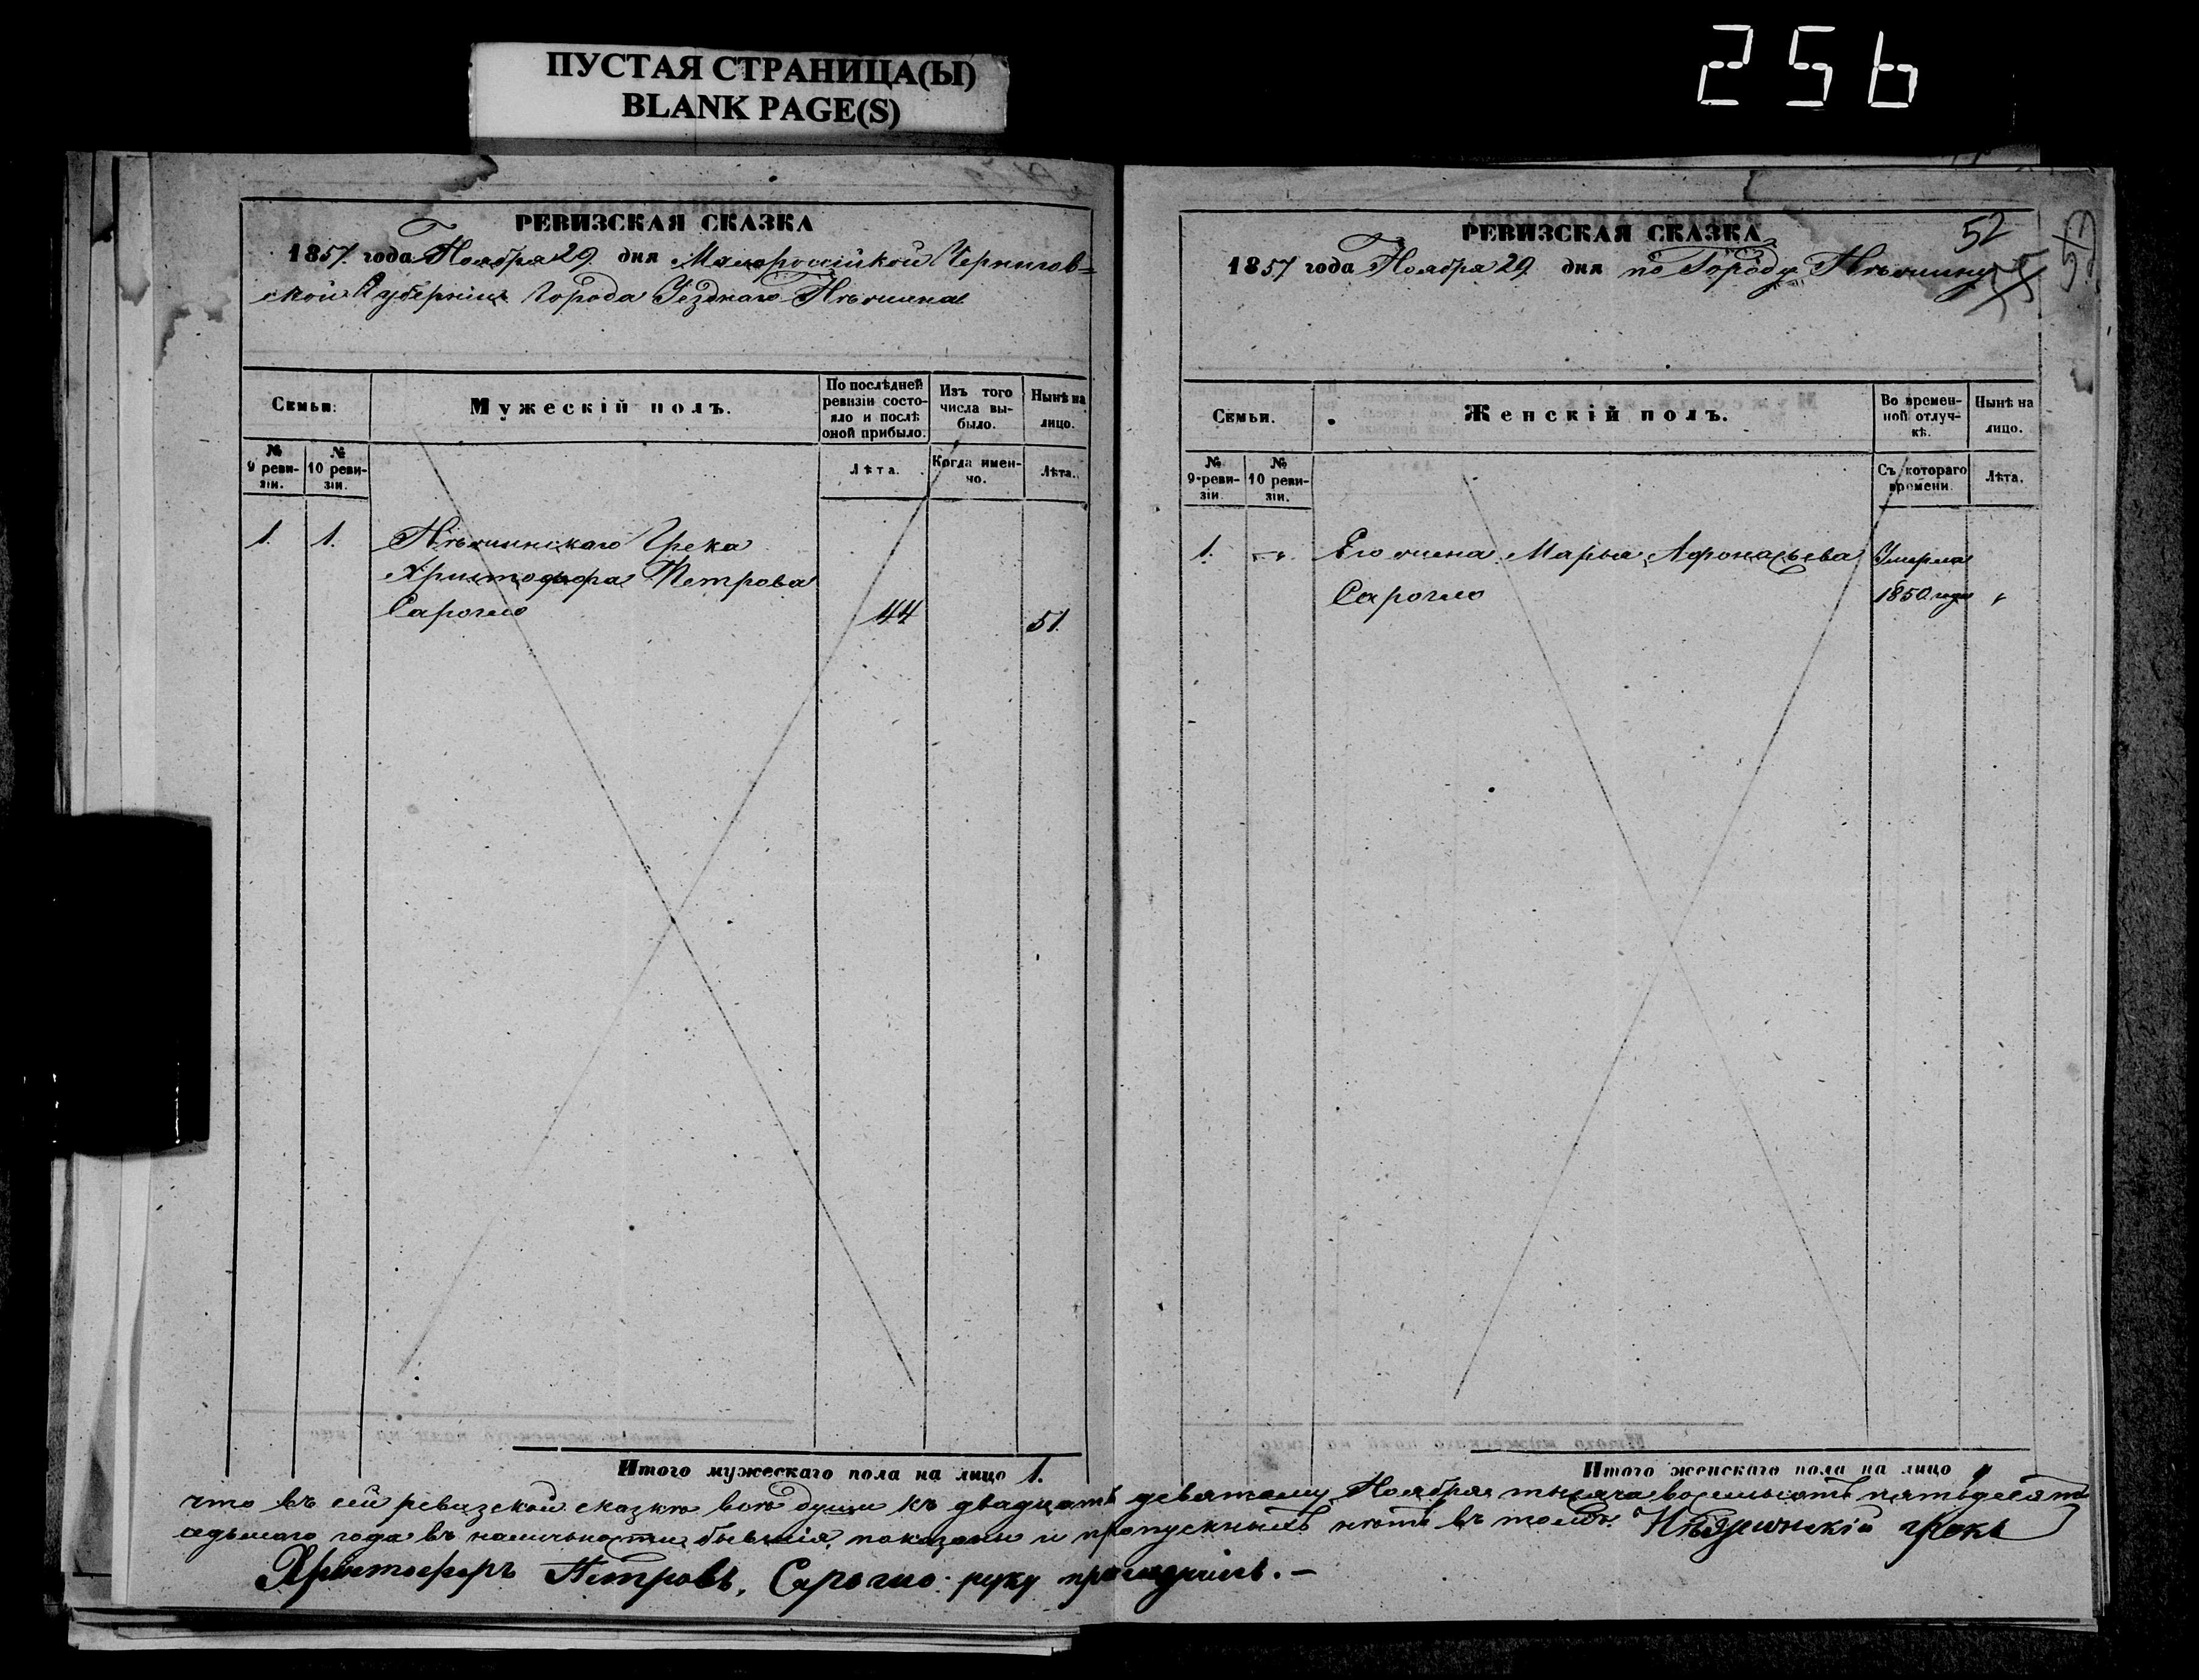 ПУСТАЯ СТРАНИЦА(Ы)
BLANK PAGE(S)
256
РЕВИЗСКАЯ СКАЗКА
1857. года Ноября 29 дня Малороссійской Чернигов=
ской Губерніи Города Уезднаго Нѣжина
Семьи:
Мужескій полъ.
По послѣдней ревизіи состояло и послѣ оной прибыло:
Изъ того числа выбыло.
Нынѣ на лицо.
№ 9 ревизіи.
№ 10 ревизіи.
Лѣта.
Когда именно.
Лѣта.
1. 1. Нѣжинскаго Грека
Христофора Петрова
Сарогло 44 51.
Итого мужескаго пола на лицо 1.
52
РЕВИЗСКАЯ СКАЗКА
1857 года Ноября 29 дня по Городу Нѣжину
52
Семьи.
Женскій полъ.
Во временной отлучкѣ.
Нынѣ на лицо.
№ 9-ревизіи.
№ 10 ревизіи.
Съ котораго времени.
Лѣта.
1. „ „ Его жена Марья Афонасьева Умерла
Сарогло 1850 года „
Итого женскаго пола на лицо „
что въ сей ревизской сказкѣ всѣ души къ двадцать девятому Ноября тысяча восемьсотъ пятьдесятъ
седьмаго года въ наличности бывшія, показаны и пропускныхъ нѣтъ въ томъ. Нѣжинскій грекъ
Христофоръ Петровъ, Сарогло руку приложилъ. —